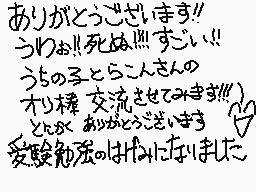 ありがとうございます!!
うわぉ!!死ぬ!!!!すごい!!
うちの子とらこんさんの
オリ棒 交流させてみます!!!
とにかく ありがとうございます
受験勉強のはげみになりました